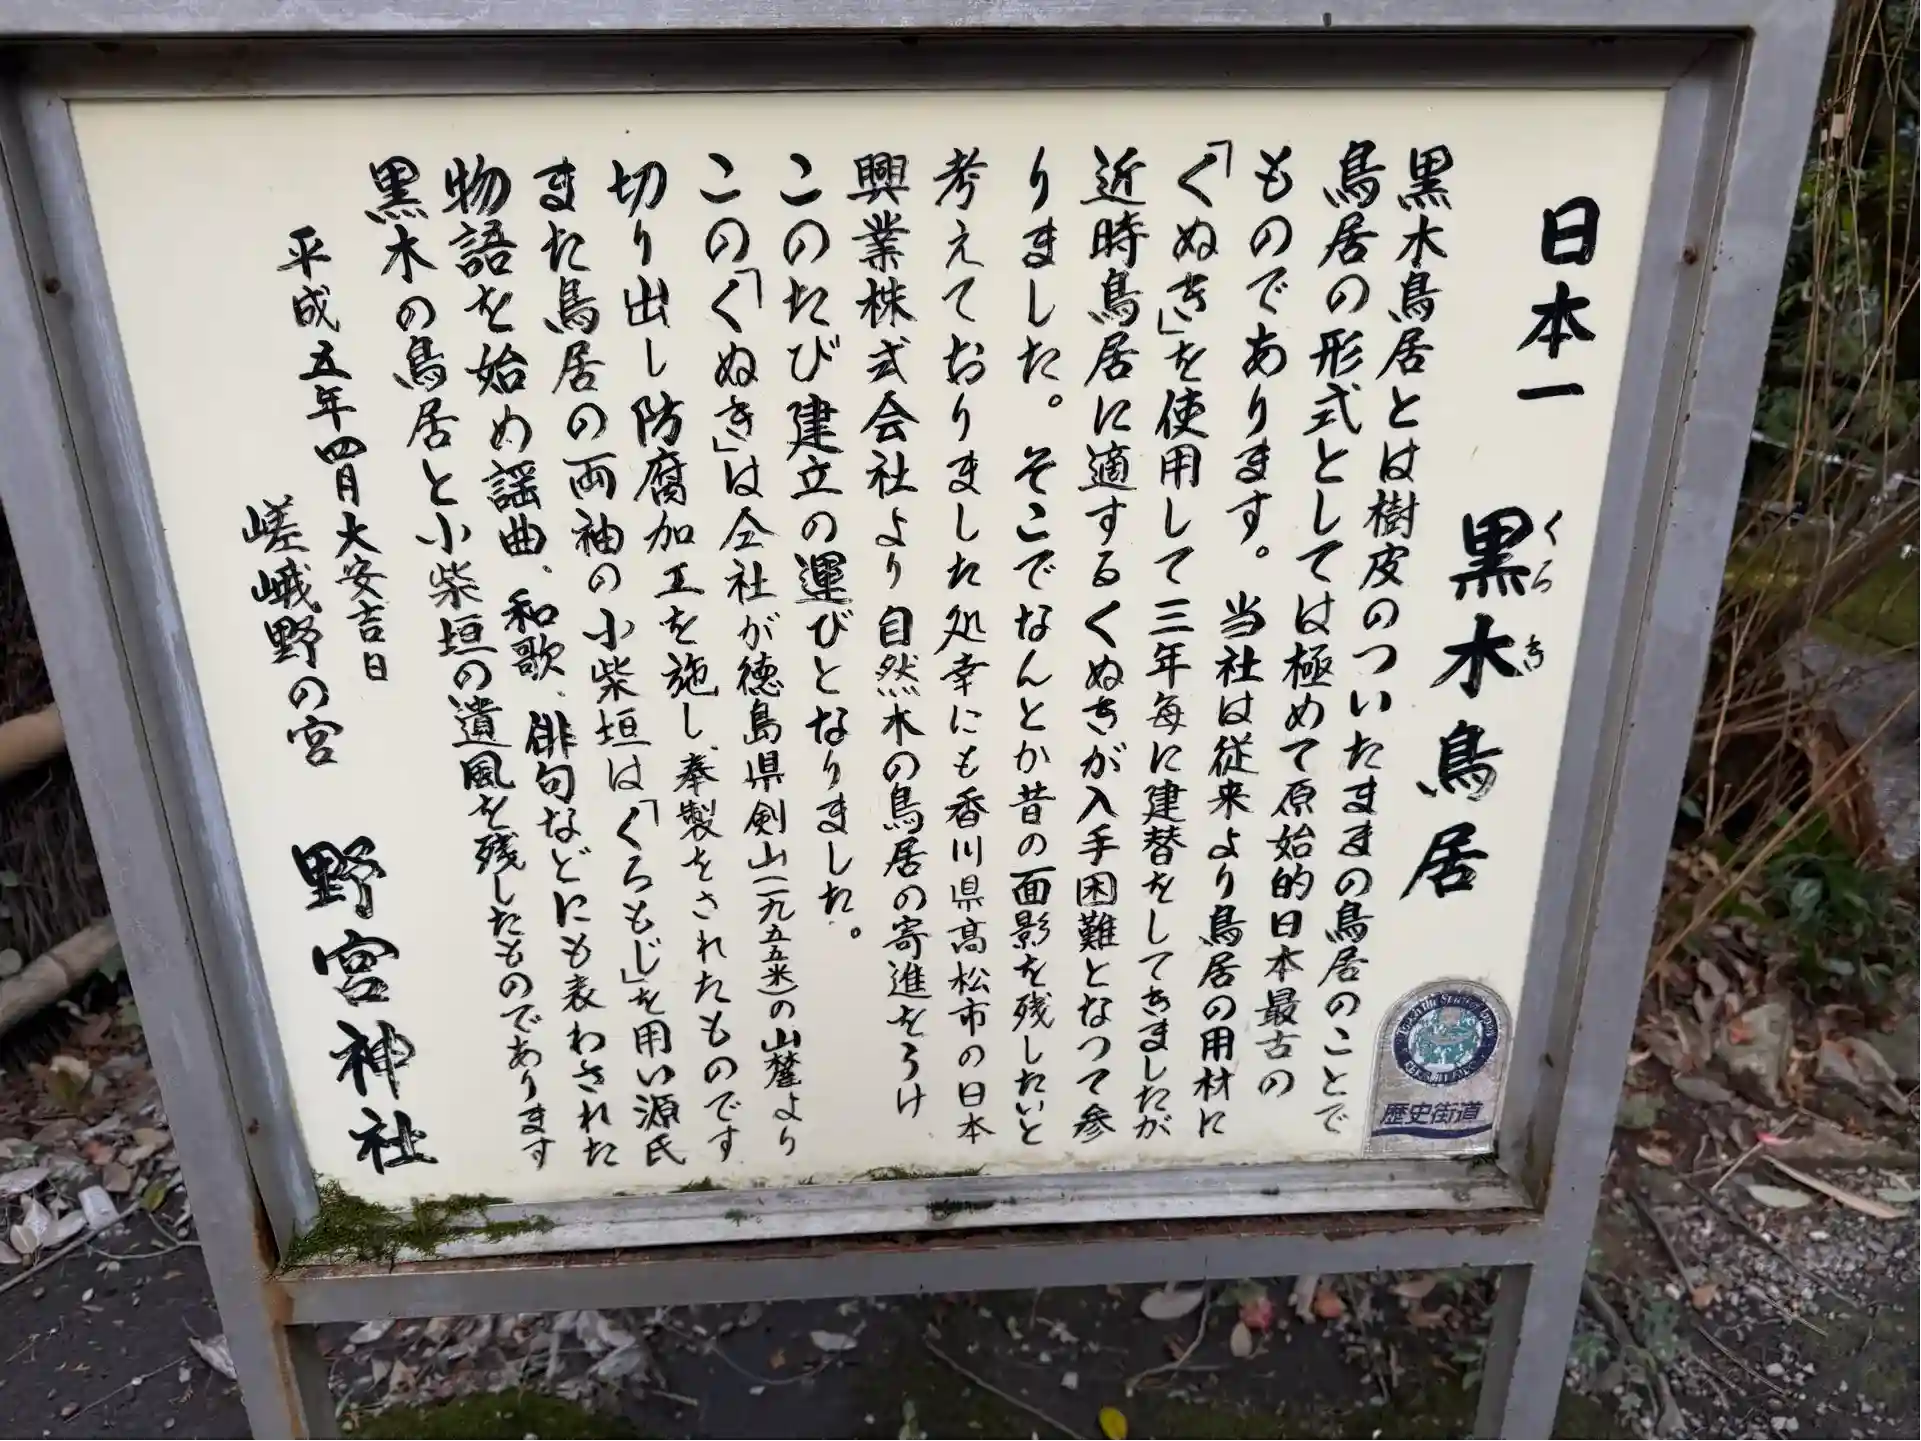 日本一 黒木鳥居
くろき
黒木鳥居とは樹皮のついたままの鳥居のことで
鳥居の形式としては極めて原始的日本最古の
ものであります。当社は従来より鳥居の用材に
「くぬぎ」を使用して三年毎に建替をしてきましたが
近時鳥居に適するくぬぎが入手困難となって参
りました。そこでなんとか昔の面影を残したいと
考えておりました処幸にも香川県高松市の日本
興業株式会社より自然木の鳥居の寄進をうけ
このたび建立の運びとなりました。
この「くぬぎ」は仝社が徳島県剣山(一九五五米)の山麓より
切り出し防腐加工を施し、奉製をされたものです
また鳥居の両袖の小柴垣は「くろもじ」を用い源氏
物語を始め謡曲、和歌、俳句などにも表わされた
黒木の鳥居と小柴垣の遺風を残したものであります
平成五年四月大安吉日
嵯峨野の宮 野宮神社
歴史街道